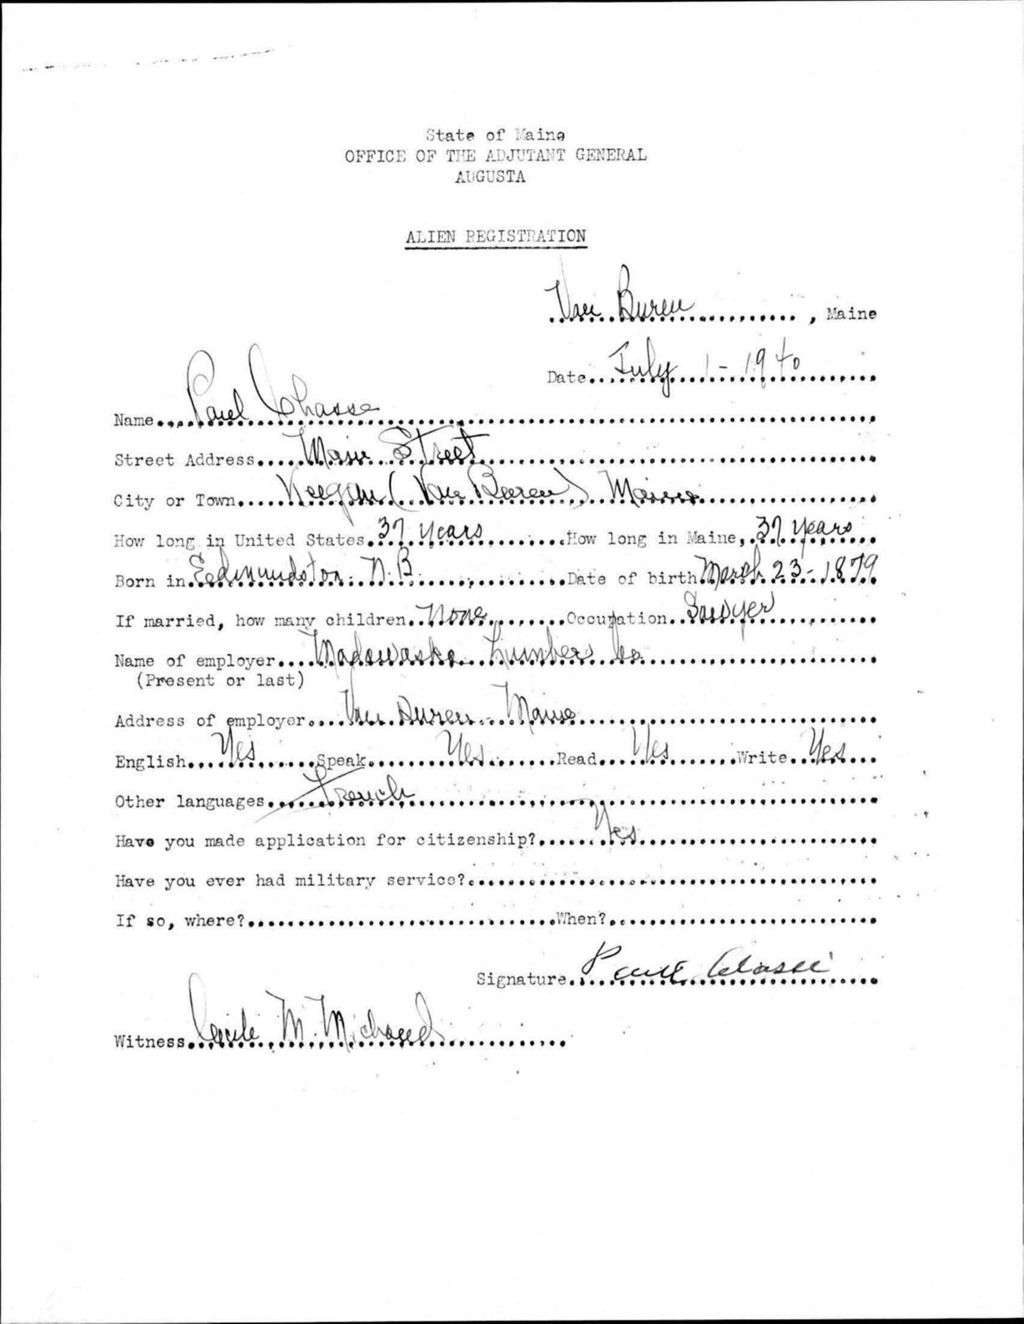 State of Maine
OFFICE OF THE ADJUTANT GENERAL
AUGUSTA
ALIEN REGISTRATION
Van Buren, Maine
Date July 1 - 1940
Name Paul Chasse
Street Address Main Street
City or Town Keegan (Van Buren) Maine
How long in United States 37 years How long in Maine, 37 years
Born in Edmundston N.B. Date of birth March 23 - 1879
If married, how many children None Occupation Sawyer
Name of employer Madawaska Lumber Co
(Present or last)
Address of employer Van Buren - Maine
English Yes Speak Yes Read Yes Write Yes
Other languages French
Have you made application for citizenship? Yes
Have you ever had military service?
If so, where? When?
Signature Paul Chasse
Witness Cecile M. Michaud